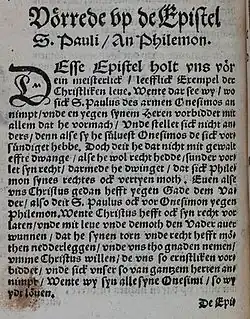 Vörrede vp de Epistel
S. Pauli / An Philemon.
DEsse Epistel holt vns vör
ein meisterlick / leefflick Exempel der
Christliken leue, Wente dar see wy / wo
sick S. Paulus des armen Onesimos an
nimpt / vnde en yegen synem Heren vorbiddet mit
allem dat he vormach / Vnde stellet sick nicht an
ders / denn alse sy he süluest Onesimos de sick vor-
sündiget hebbe. Doch deit he dat nicht mit gewalt
effte dwange / alse he wol recht hedde / sunder vor
let syn recht / darmede he dwinget / dat sick Phile
mon synes rechtes ock vertyen moth. Euen alse
vns Christus gedan hefft yegen Gade dem Va-
der / also deit S. Paulus ock vor Onesimon yegen
Philemon. Wente Christus hefft ock syn recht vor
laten / vnde mit leue vnde demoth den Vader auer
wunnen / dat he synen torn vnde recht hefft mö-
then nedderleggen / vnde vns tho gnaden nemen /
vmme Christus willen / de vns so ernstliken vor-
biddet / vnde sick vnser so van gantzem herten an
nimpt / Wente wy syn alle syne Onesimi / so wy
ydt löuen.
De Epi